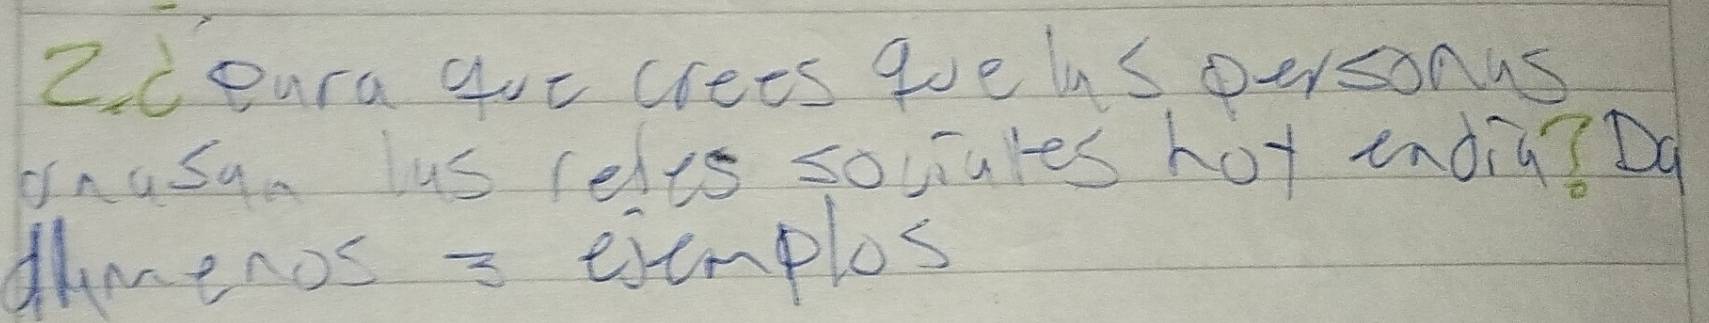 2.¿para que crees que las personas
usan las redes sociales hoy endia? Da
almenos 3 ejemplos